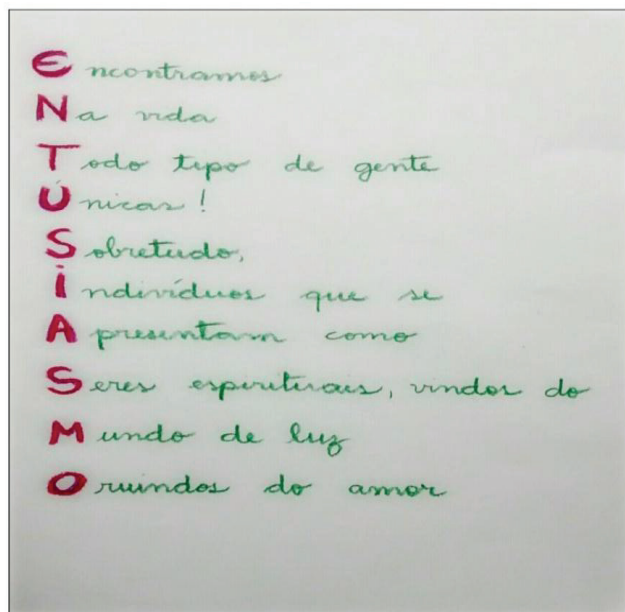 Encontramos
Na vida
Todo tipo de gente
Únicas!
Sobretudo,
Indivíduos que se
Apresentam como
Seres espirituais, vindos do
Mundo de luz
Oruindos do amor